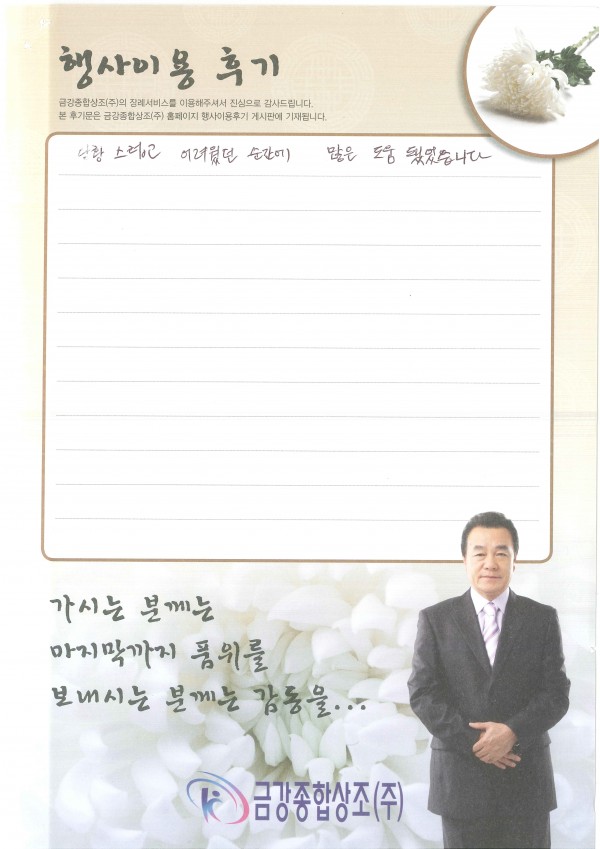 행사이용 후기
금강종합상조(주)의 장례서비스를 이용해주셔서 진심으로 감사드립니다.
본 후기문은 금강종합상조(주) 홈페이지 행사이용후기 게시판에 기재됩니다.
당황 스럽고 어려웠던 순간에 많은 도움 됬었습니다
가시는 분께는
마지막까지 품위를
보내시는 분께는 감동을...
금강종합상조(주)